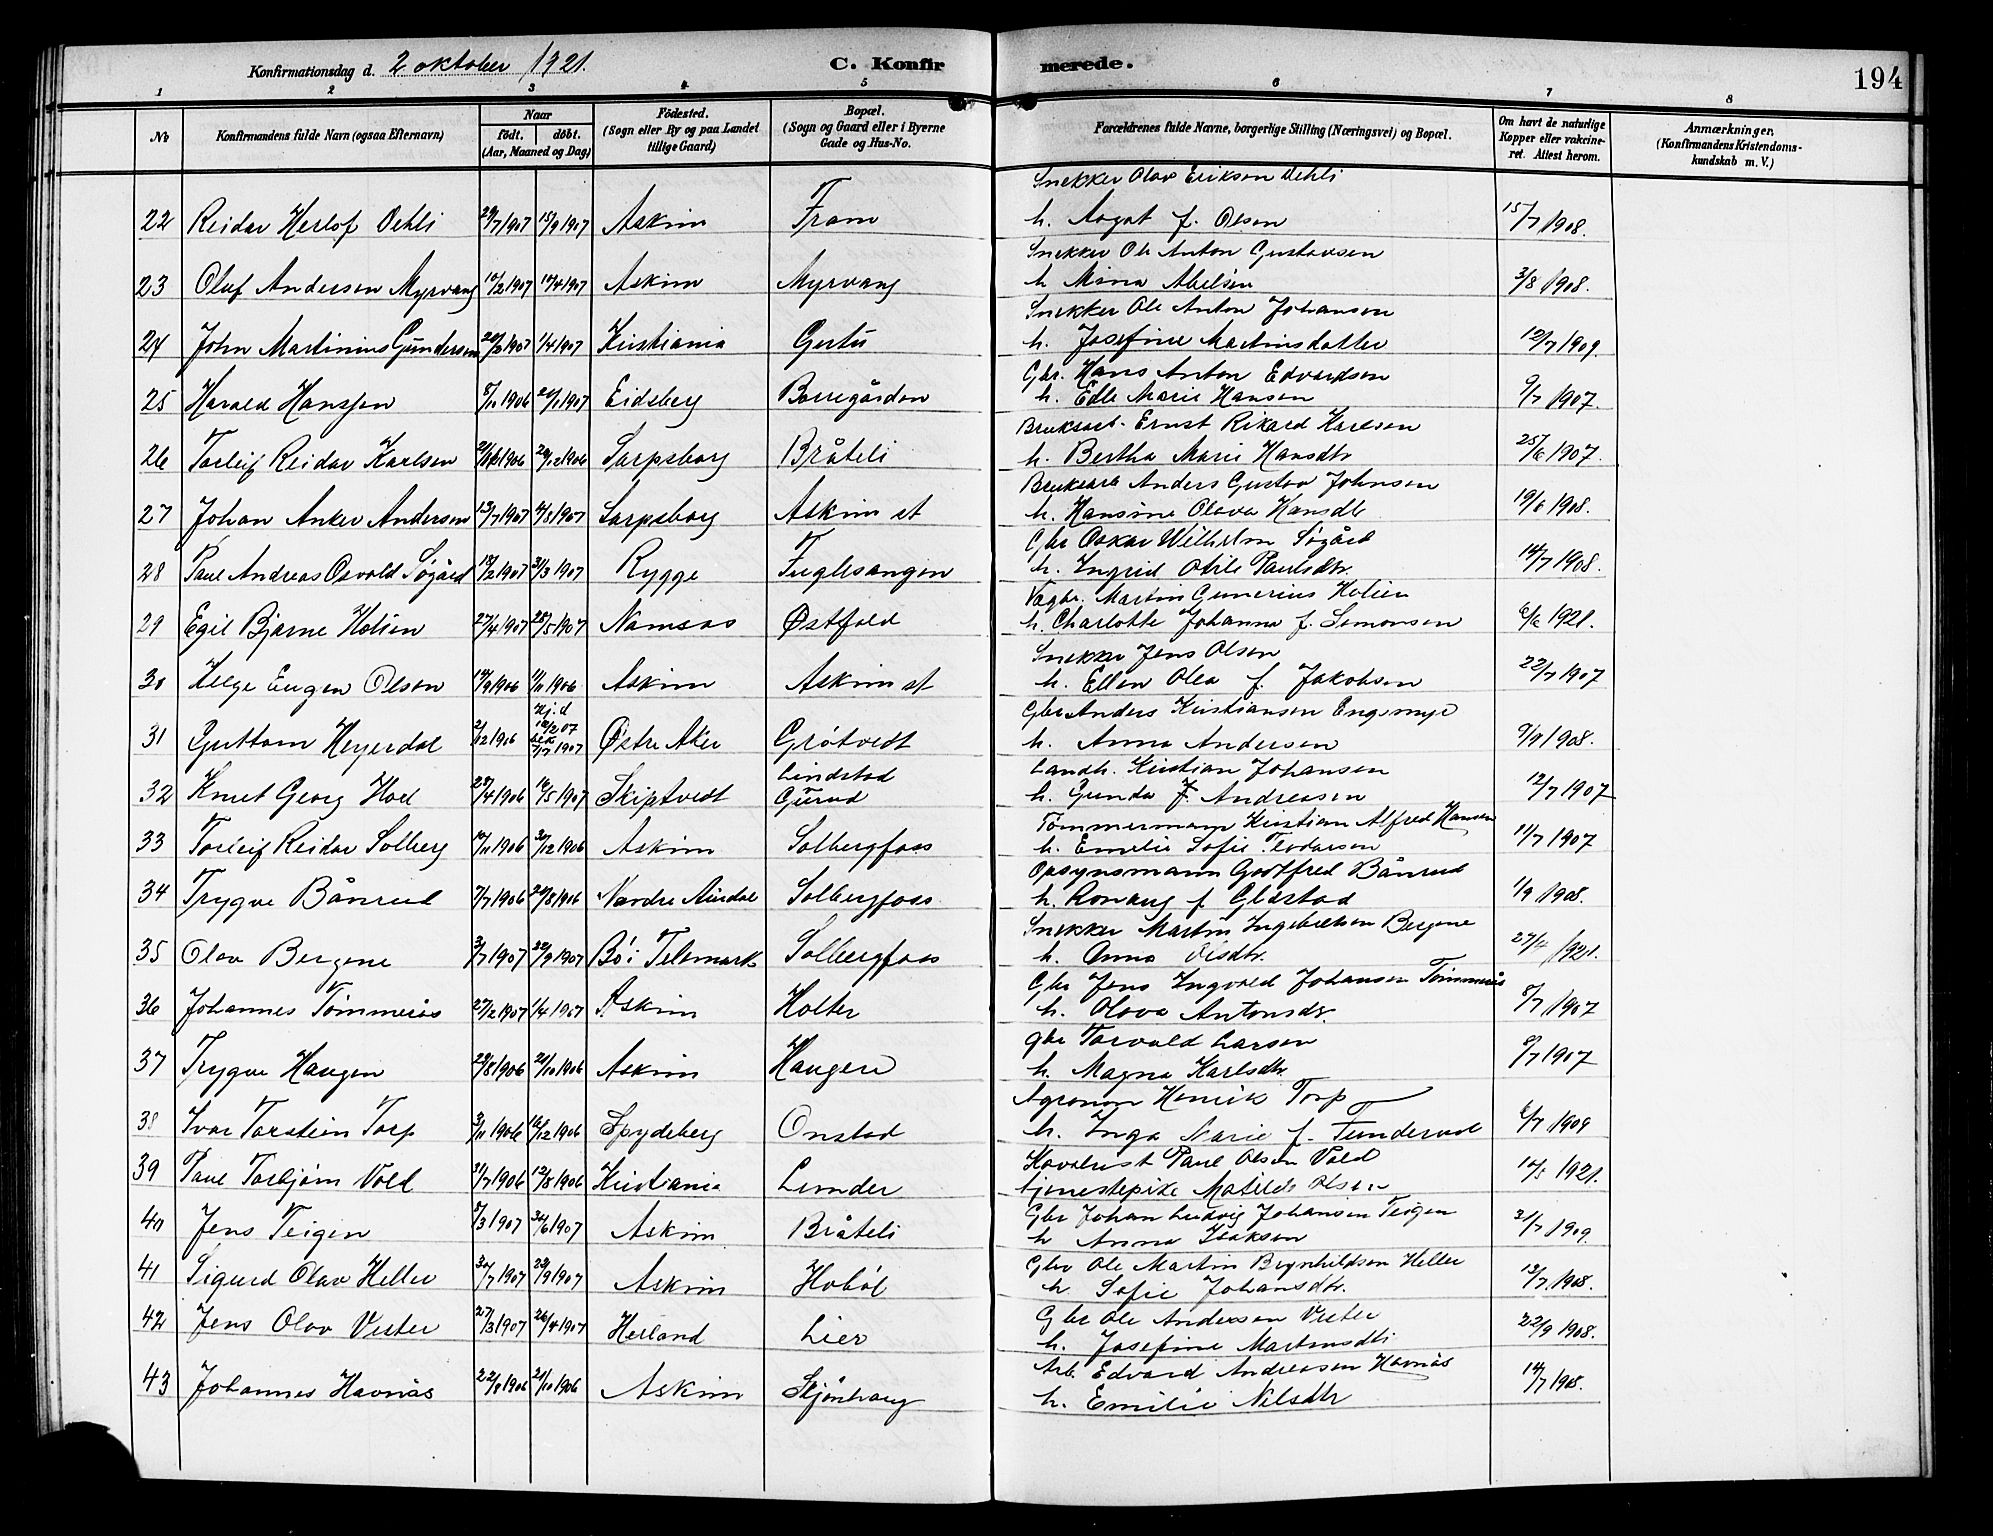 Konfirmationsdag d. 2 oktober 1921. C. Konfirmerede. 194
1 2 3 4 5 6 7 8
No Konfirmandens fulde Navn (ogsaa Efternavn) Naar födt. döbt. (Aar, Maaned og Dag) Födested. (Sogn eller By og paa Landet tillige Gaard) Bopæl. (Sogn og Gaard eller i Byerne Gade og Hus-No. Forældrenes fulde Navne, borgerlige Stilling (Næringsvei) og Bopæl. Om havt de naturlige Kopper eller vakcineret. Attest herom. Anmærkninger. (Konfirmandens Kristendomskundskab m. V.)
Snekker Olav Eriksen Dehli
22 Reidar Herlof Dehli 29/7 1907 15/9 1907 Askim Fram h. Aagot f. Olsen 15/7 1908.
Snekker Ole Anton Gustavsen
23 Oluf Andersen Myrvang 10/2 1907 14/4 1907 Askim Myrvang h. Mina Abelsen 3/8 1908.
Snekker Ole Anton Johansen
24 John Martinius Gundersen 20/2 1907 1/4 1907 Kristiania Gertu h. Josefine Martinsdatter 12/7 1909.
Gbr. Hans Anton Edvardsen
25 Harald Hansen 8/11 1906 20/1 1907 Eidsberg Borregården h. Edle Marie Hansen 9/7 1907.
Bruksarb. Ernst Rikard Karlsen
26 Torleif Reidar Karlsen 1906 26/12 1906 Sarpsborg Bråteli h. Bertha Marie Hansdtr 25/6 1907.
Bruksarb Anders Gustav Johnsen
27 Johan Anker Andersen 13/7 1907 4/8 1907 Sarpsborg Askim st h. Hansine Olava Hansdtr 19/6 1908.
Gbr Oskar Wilhelm Søgård
28 Paul Andreas Osvald Søgård 18/2 1907 31/3 1907 Rygge Fuglesangen h. Ingrid Otile Paulsdtr. 14/7 1908.
Martin Gunerius Holien
29 Egil Bjarne Holien 27/4 1907 28/5 1907 Namsos Østfold h. Charlotte Johanna f. Simonsen 6/6 1921.
Snekker Jens Olsen
30 Helge Eugen Olsen 19/9 1906 11/11 1906 Askim Askim st h. Ellen Olea f. Jakobsen 22/7 1907
Gbr Anders Kristiansen Engsmyr
31 Guttorm Heyerdal 2/12 1906 Hj.d 10/2 07 bek 7/7 1907 Østre Aker Grøtvedt h. Anna Andersen 9/9 1908.
Landh. Kristian Johansen
32 Knut Georg Hoel 28/4 1906 16/5 1907 Skiptvedt Lindstad Gurud h. Gunda f. Andreasen 12/7 1907
Tømmermann Kristian Alfred Hansen
33 Torleif Reidar Solberg 10/11 1906 30/12 1906 Askim Solbergfoss h. Emilie Sofie Teodorsen 11/7 1907
Opsynsmann Godtfred Bånrud
34 Trygve Bånrud 7/7 1906 26/8 1906 Nordre Aurdal Solbergfoss. h. Ronaug f. Gldstad 1/9 1908.
Snekker Martin Ingebretsen Bergene
35 Olav Bergene 3/7 1907 22/9 1907 Bø i Telemark Solbergfoss h. Anna Olsdtr. 27/4 1921.
Gbr Jens Ingvald Johansen Tømmerås
36 Johannes Tømmerås 27/2 1907 1/4 1907 Askim Holter h. Olava Antonsdtr. 8/7 1907
Gbr Torvald Larsen
37 Trygve Haugen 29/8 1906 21/10 1906 Askim Haugen h. Magna Karlsdtr. 9/7 1907
Agronom Henrik Torp
38 Ivar Torstein Torp 3/11 1906 16/12 1906 Spydeberg Onstad h. Inga Marie f. Tunderud 6/7 1909
Kavalerist Paul Olsen Vold
39 Paul Torbjørn Vold 31/7 1906 12/8 1906 Kristiania Lunder tjenestepike Matilde Olsen 14/5 1921.
Gbr Johan Ludvig Johansen Teigen
40 Jens Teigen 8/3 1907 30/6 1907 Askim Bråteli h Anna Isaksen 21/7 1909.
Gbr Ole Martin Brynhildsen Heller
41 Sigurd Olav Heller 30/7 1907 22/9 1907 Askim Hobøl h Sofie Johansdtr. 13/7 1908.
Gbr Ole Andersen Vister
42 Jens Olav Vister 27/3 1907 26/4 1907 Herland Lier h. Josefine Martinsdtr 22/9 1908.
Arb. Edvard Andreasen Havnås
43 Johannes Havnås 22/9 1906 21/10 1906 Askim Skjønhaug h. Emilie Nilsdtr 14/7 1908.